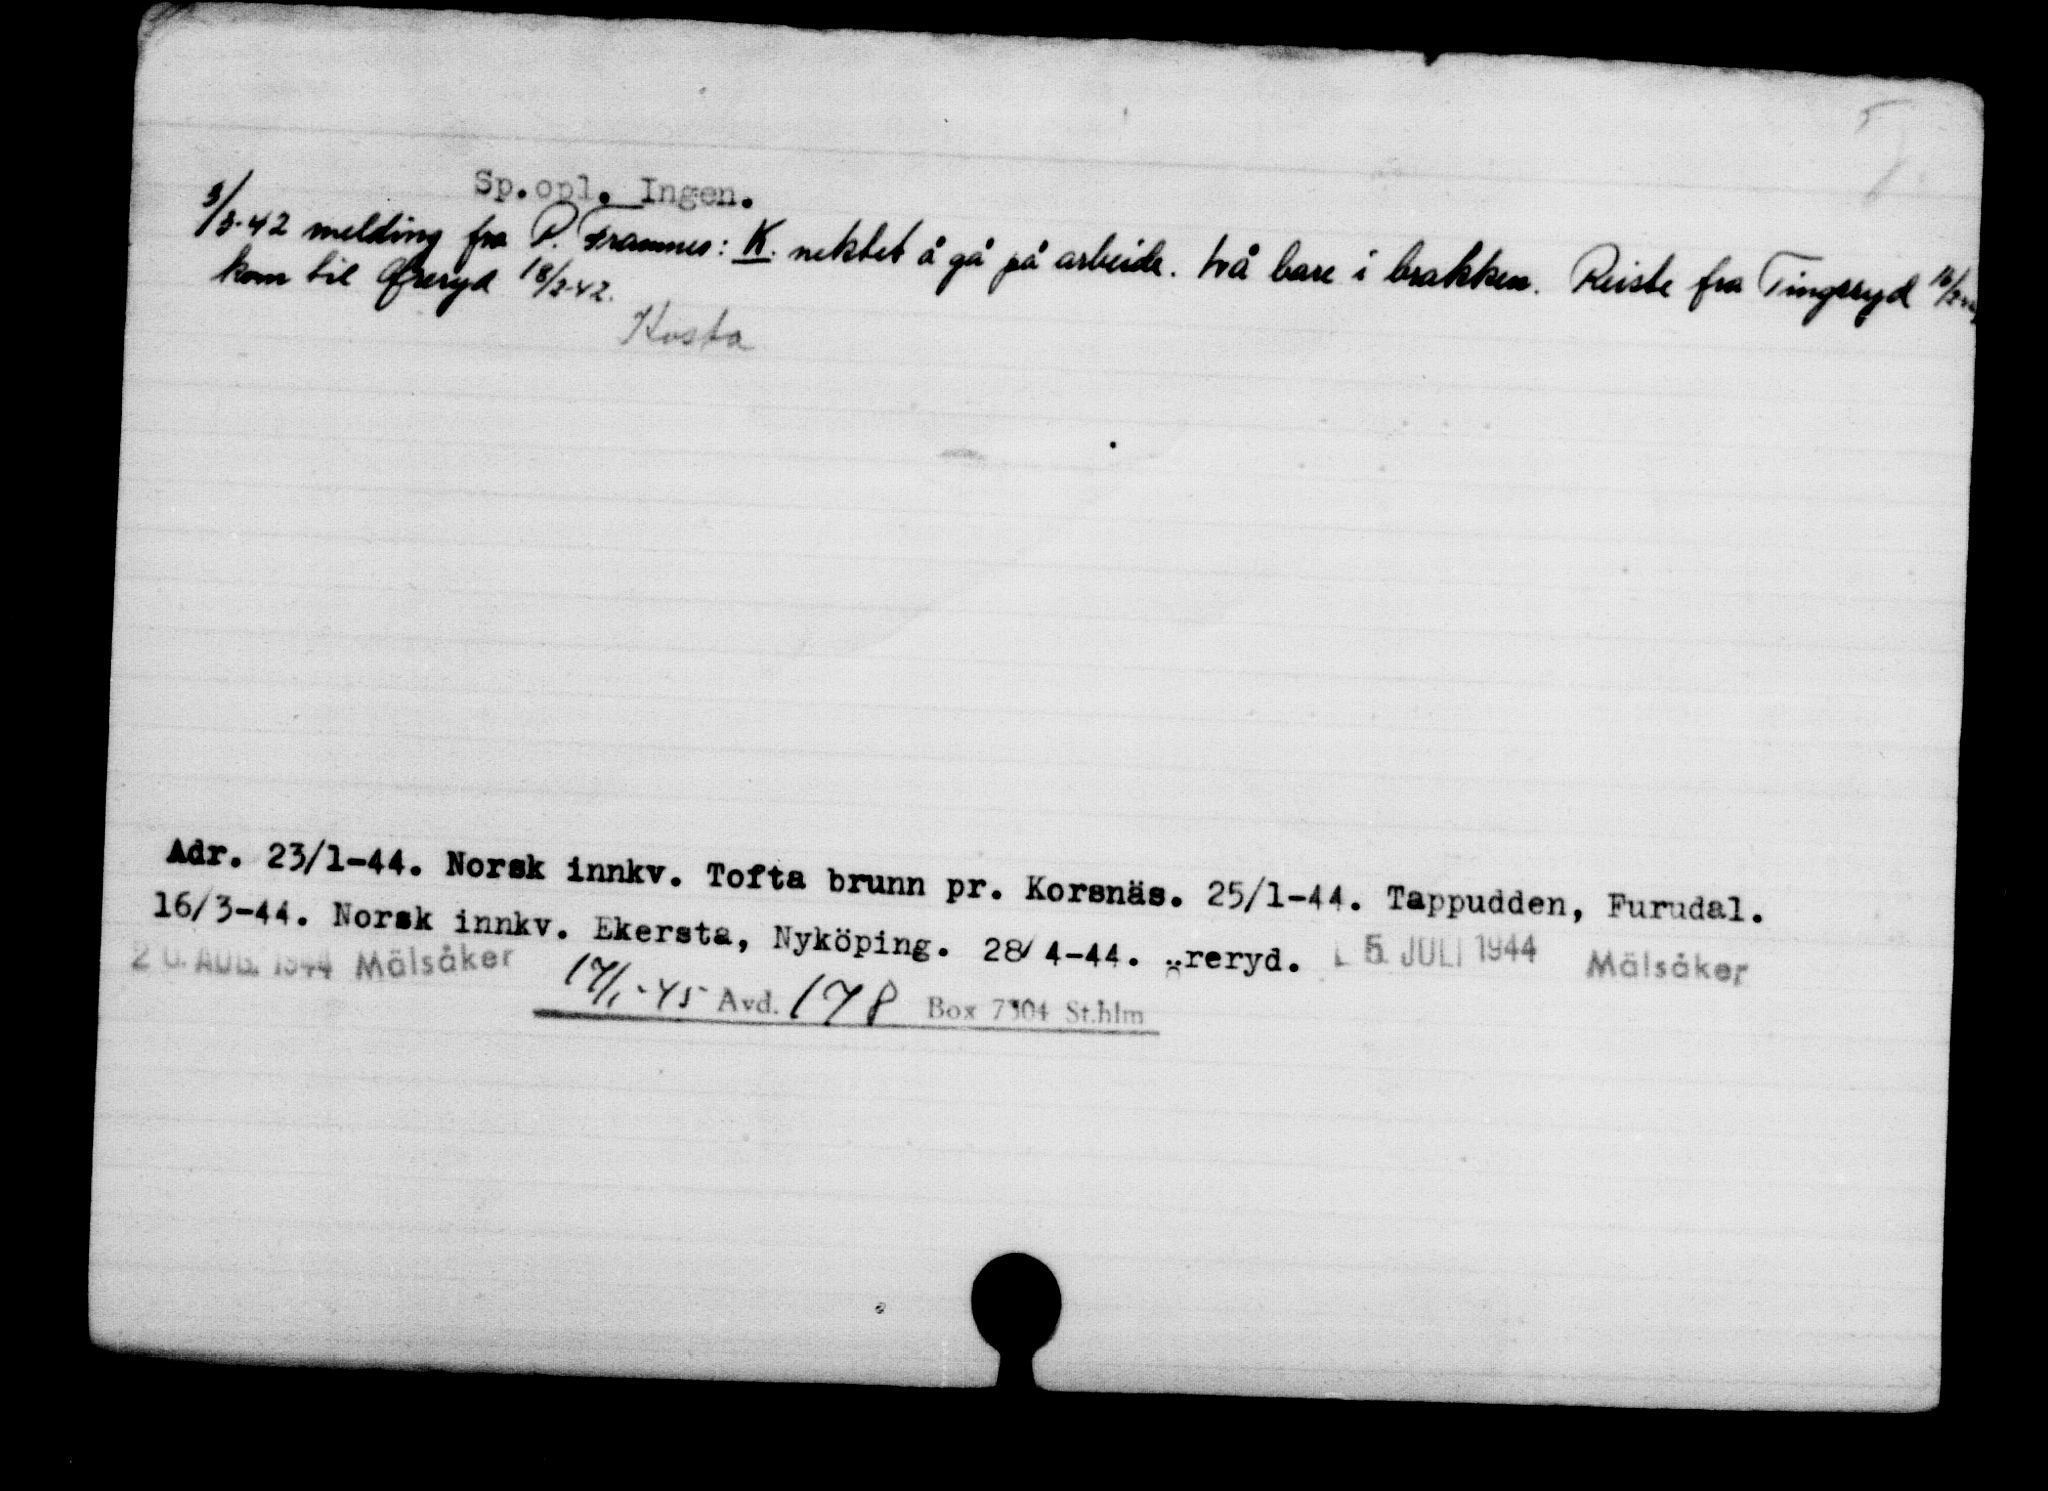 Sp.opl. Ingen.
3/3-42 melding fra P. Framnes: K. nektet å gå på arbeide. lå bare i brakken. Reiste fra Tingsryd
kom til Öreryd 18/2-42.
Kosta
Adr. 23/1-44. Norsk innkv. Tofta brunn pr. Korsnäs. 25/1-44. Tappudden, Furudal.
16/3-44. Norsk innkv. Ekersta, Nyköping. 28/4-44. Öreryd. 5. JULI 1944 Mälsåker
20. AUG. 1944 Mälsåker 17/1-45 Avd. 178 Box 7304 St.hlm